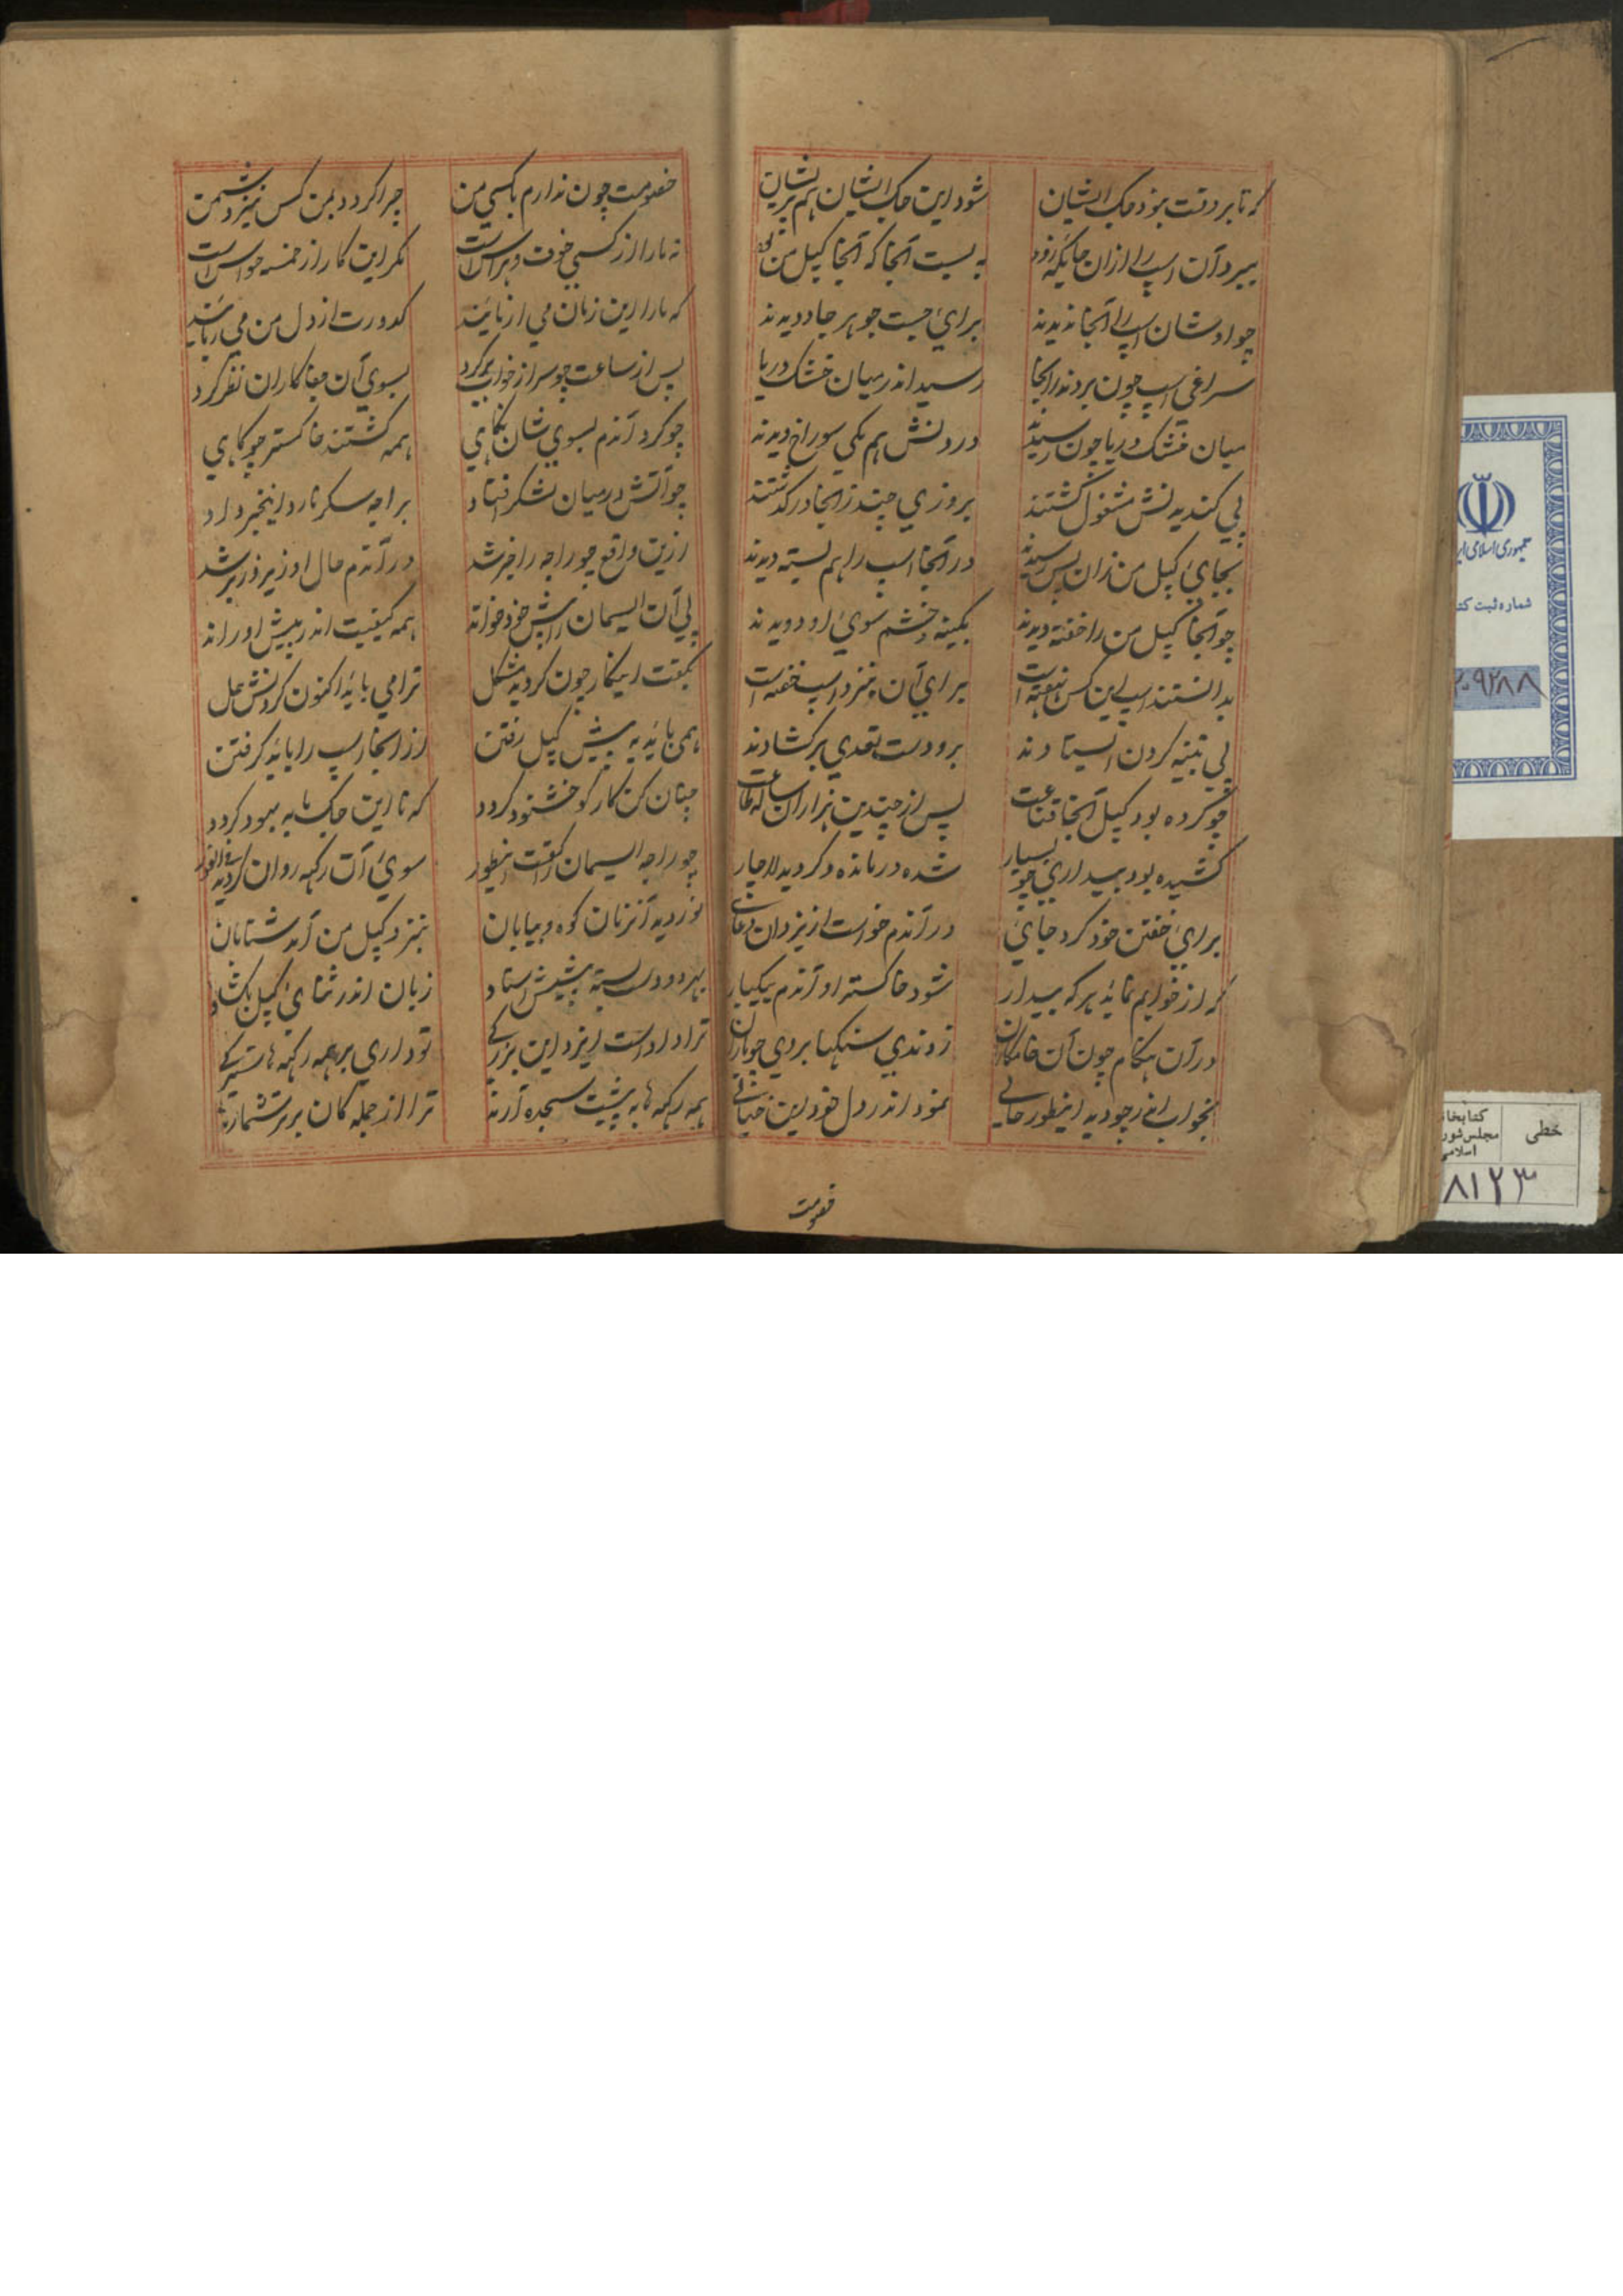 که تا بر وقت بود جک ایشان
شود این جک ایشان هم پریشان
ببرد آن اسپ را از آن جایگه زود
به بست آنجا که آنجا کپل من بود
چو اوشان اسپ را آنجا ندیدند
برای جست جو هر جا دویدند
سراغی اسپ چون بردند زانجا
رسید اندر میان خشک دریا
میان خشک دریا چون رسیدند
درونش هم یکی سوراخ دیدند
پی کندیدنش مشغول گشتند
بروزی چند زانجا در گذشتند
بجای کپل من زان پس رسیدند
در آنجا اسپ را هم بسته دیدند
چو آنجا کپل من را خفته دیدند
بکینه و خشم سوی او دویدند
بدانستند اسپ این کس نهفته است
برای آن بنزد اسپ خفته است
پی تنبیه کردن ایستادند
برو دست تعدی بر گشادند
چو کرده بود کپل آنجا قناعت
پس از چندین هزاران ساله طاعت
کشیده بود بیداری چو بسیار
شده درمانده و گردید لاچار
برای خفتن خود کرد جای
در آندم خواست از یزدان دعای
که از خوابم نماید هر که بیدار
شود خاکستر او آندم بیکبار
در آن هنگام چون آن خامکاران
زدندی سنگها بر وی چو باران
بخواب اندر چو دید اینطور حالی
نمود اندر دل خود این خیالی
خصومت
خصومت چون ندارم با کسی من
چرا گردد بمن کس نیز دشمن
نه ما را از کسی خوف و هراس است
مگر این کار از خمسه حواس است
که ما را این زمان می آزمایند
کدورت از دل من می ربایند
پس از ساعت چو سر از خواب بر کرد
بسوی آن جفاکاران نظر کرد
چو کرد آندم بسوی شان نگاهی
همه گشتند خاکستر چو کاهی
چو آتش در میان لشکر افتاد
براجه سکر نارد اینخبر داد
ازین واقع چو راجه را خبر شد
در آندم حال او زیر و زبر شد
پی آن السیمان را پیش خود خواند
همه کیفیت اندر پیش او راند
بگفت اینکار چون گردید مشکل
ترا می باید اکنون کردنش حل
همی باید به پیش کپل رفتن
از آنجا اسپ را باید گرفتن
چنان کن کار کو خشنود گردد
که تا این جک ما بهبود گردد
چو راجه السیمان را گفت اینطور
سوی آن رکهه روان گردید فی الفور
نوردید آنزمان کوه و بیابان
بنزد کپل من آمد شتابان
بهر دو دست بسته پیشش استاد
زبان اندر ثنای کپل بکشاد
ترا داد است ایزد این بزرگی
تو داری بر همه رکهه ها سترگی
همه رکهه ها به پیشت سجده آرند
ترا از جمله گان برتر شمارند
جمهوری اسلامی
شماره ثبت
۲۰۹۲۸۸
خطی
کتابخانه
مجلس شورای
اسلامی
۸۱۲۳